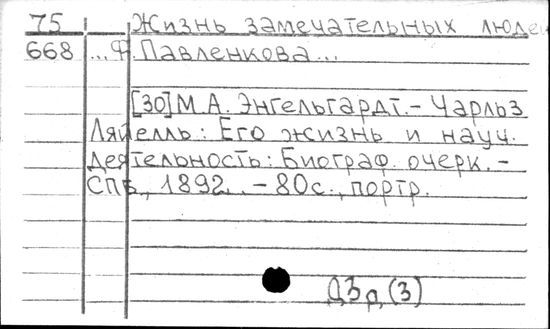 75 Жизнь замечательных люде
668 ...Ф.Павленкова...
[30]М.А. Энгельгардт.- Чарльз
Ляйелль: Его жизнь и науч.
деятельность: Биограф. очерк.-
СПб., 1892. -80с., портр.
(3)